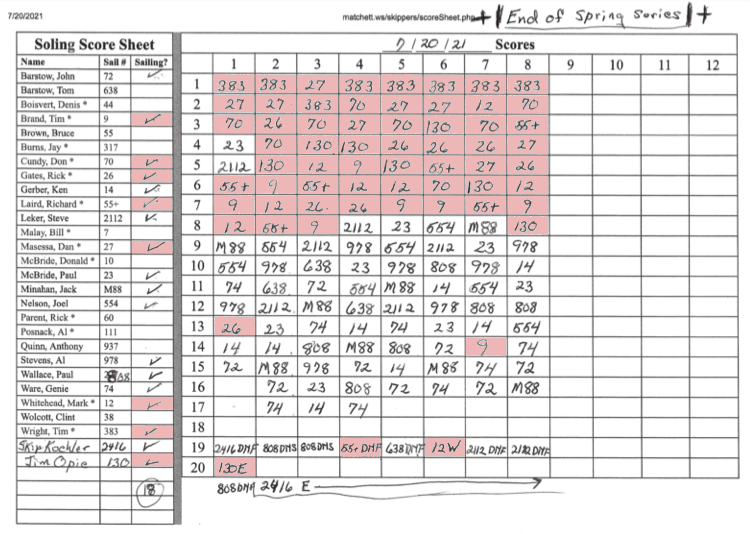 7/20/2021 matchett.ws/skippers/scoreSheet.php + | End of Spring Series | +
Soling Score Sheet 7/20/21 Scores
Name Sail # Sailing? 1 2 3 4 5 6 7 8 9 10 11 12
Barstow, John 72 ✓
Barstow, Tom 638
Boisvert, Denis * 44
Brand, Tim * 9 ✓
Brown, Bruce 55
Burns, Jay * 317
Cundy, Don * 70 ✓
Gates, Rick * 26 ✓
Gerber, Ken 14 ✓
Laird, Richard * 55+ ✓
Leker, Steve 2112 ✓
Malay, Bill * 7
Masessa, Dan * 27 ✓
McBride, Donald * 10
McBride, Paul 23 ✓
Minahan, Jack M88 ✓
Nelson, Joel 554 ✓
Parent, Rick * 60
Posnack, Al * 111
Quinn, Anthony 937
Stevens, Al 978 ✓
Wallace, Paul 808 ✓
Ware, Genie 74 ✓
Whitehead, Mark * 12 ✓
Wolcott, Clint 38
Wright, Tim * 383 ✓
Skip Kochler 2416 ✓
Jim Opie 130 ✓
18
1 383 383 27 383 383 383 383 383
2 27 27 383 70 27 27 12 70
3 70 26 70 27 70 130 70 55+
4 23 70 130 130 26 26 26 27
5 2112 130 12 9 130 55+ 27 26
6 55+ 9 55+ 12 12 70 130 12
7 9 12 26 26 9 9 55+ 9
8 12 55+ 9 2112 23 554 M88 130
9 M88 554 2112 978 554 2112 23 978
10 554 978 638 23 978 808 978 14
11 74 638 72 554 M88 14 554 23
12 978 2112 M88 638 2112 978 808 808
13 26 23 74 14 74 23 14 554
14 14 14 808 M88 808 72 9 74
15 72 M88 978 72 14 M88 74 72
16 72 23 808 72 74 72 M88
17 74 14 74
18
19 2416 DMF 808 DNS 808 DNS 55+ DMF 638 DMF 12W 2112 DMF 2112 DMF
20 130E
808 DMF 2416 E →